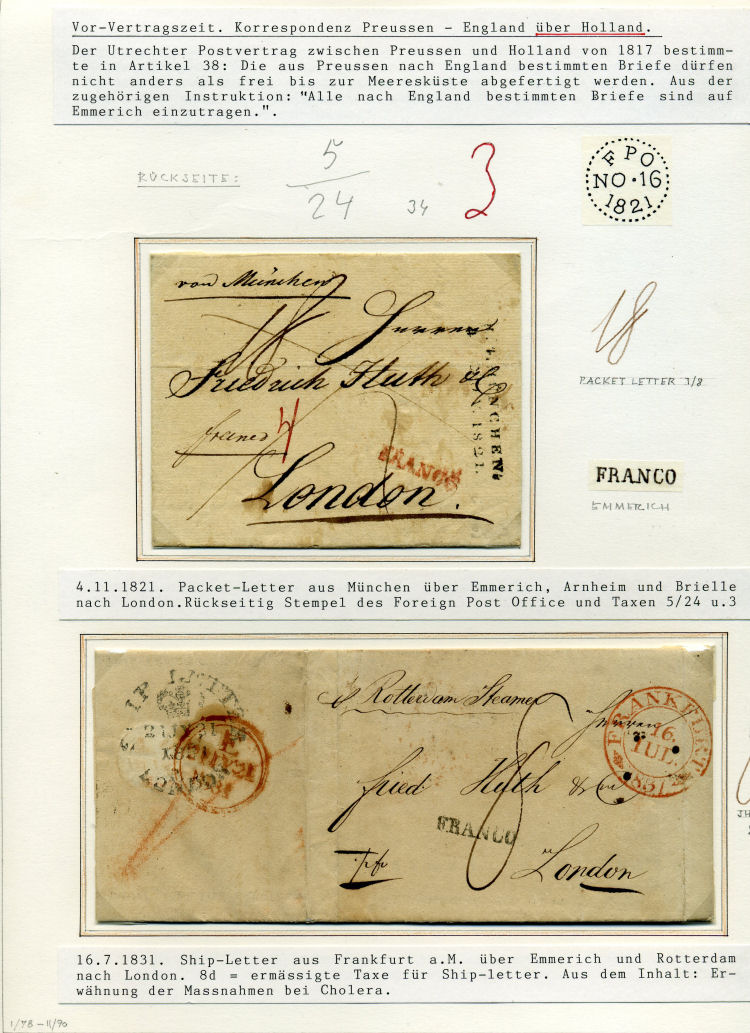 Vor-Vertragszeit. Korrespondenz Preussen - England über Holland.
Der Utrechter Postvertrag zwischen Preussen und Holland von 1817 bestimm-
te in Artikel 38: Die aus Preussen nach England bestimmten Briefe dürfen
nicht anders als frei bis zur Meeresküste abgefertigt werden. Aus der
zugehörigen Instruktion: "Alle nach England bestimmten Briefe sind auf
Emmerich einzutragen.".
RÜCKSEITE:
5
24
34
3
FPO
NO·16
1821
von München
18
Herren
Friedrich Huth & C
franco
4
FRANCO
London.
MÜNCHEN
1821.
18
PACKET LETTER 1/8
FRANCO
EMMERICH
4.11.1821. Packet-Letter aus München über Emmerich, Arnheim und Brielle
nach London.Rückseitig Stempel des Foreign Post Office und Taxen 5/24 u.3
SHIP LETTER
LONDON
Rotterdam Steamer
Herren
fried Huth & Co
FRANCO
London
8
FRANKFURT
16.
JUL.
1831
16.7.1831. Ship-Letter aus Frankfurt a.M. über Emmerich und Rotterdam
nach London. 8d = ermässigte Taxe für Ship-letter. Aus dem Inhalt: Er-
wähnung der Massnahmen bei Cholera.
1/78-11/90